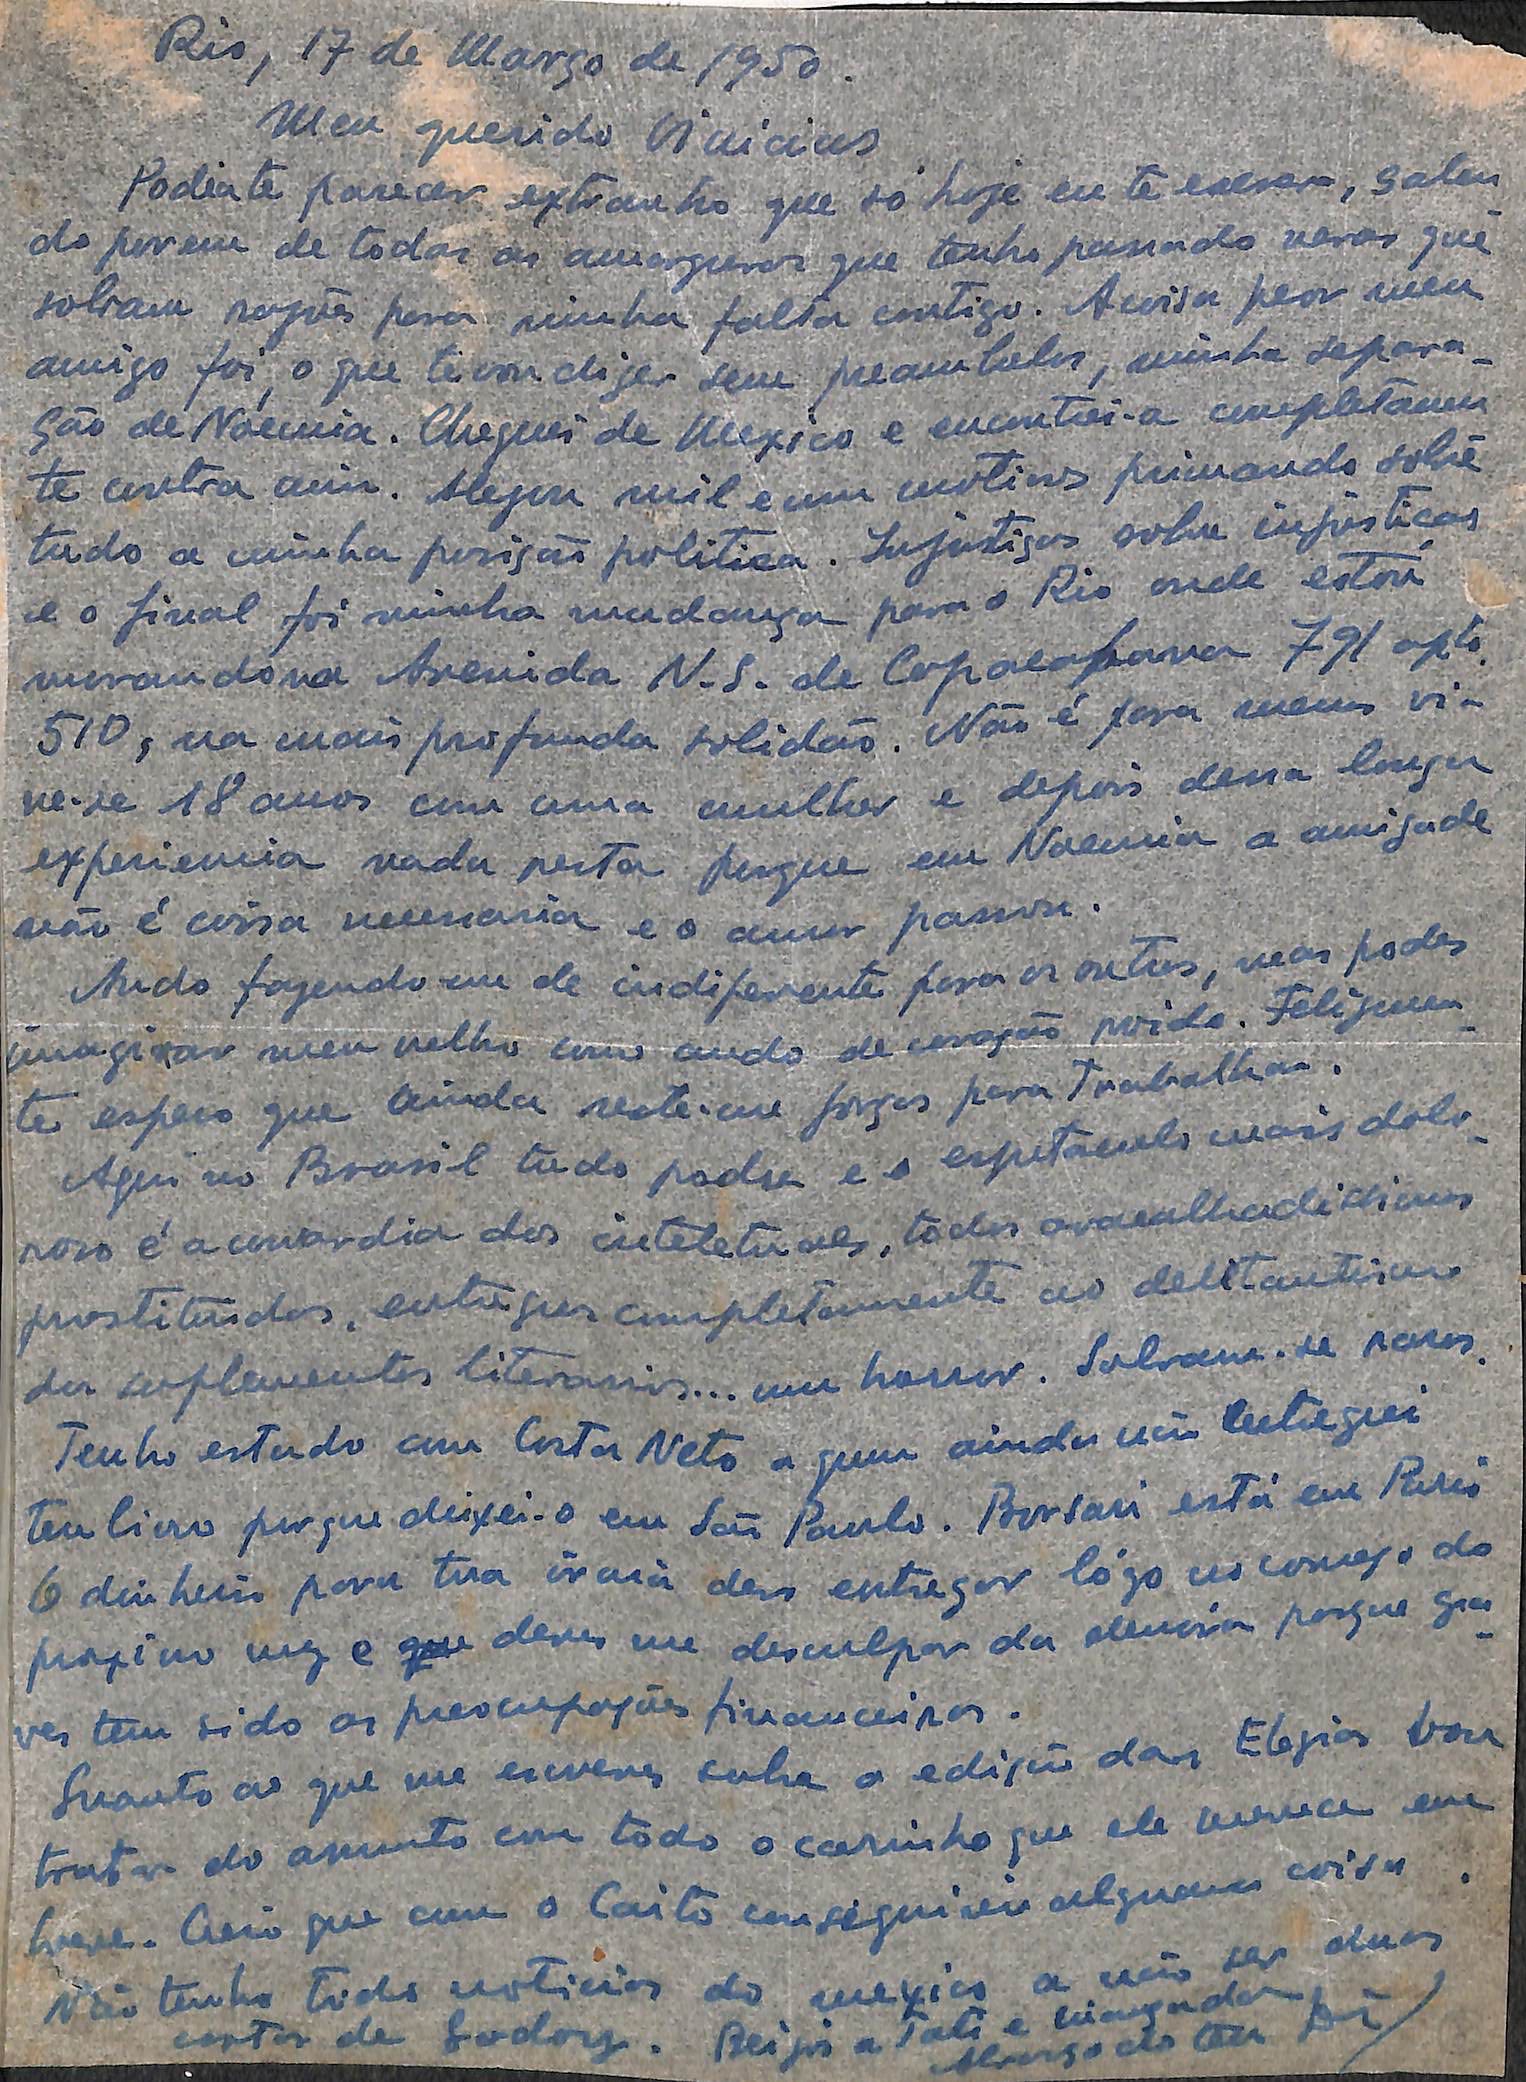 Rio, 17 de Março de 1950.
Meu querido Vinicius
Podia te parecer extranho que só hoje eu te escreva, saben
do porem de todas as amarguras que tenho passado veras que
sobram rasões para minha falta contigo. A coisa peor meu
amigo foi, o que te vou dizer sem preambulos, minha separa-
ção de Noêmia. Cheguei de Mexico e encontrei-a completamen
te contra mim. Alegou mil e um motivos primando sobre
tudo a minha posição politica. Injustiças sobre injustiças
e o final foi minha mudança para o Rio onde estou
morando na Avenida N.S. de Copacabana 791 apto.
510, na mais profunda solidão. Não é para menos vi-
ve-se 18 anos com uma mulher e depois dessa longa
experiencia nada resta porque em Noemia a amizade
não é coisa necessaria e o amor passou.
Ando fazendo-me de indiferente para os outros, mas podes
imaginar meu velho como ando de coração roido. Felizmen-
te espero que ainda reste-me forças para trabalhar.
Aqui no Brasil tudo podre e o espetaculo mais dolo-
roso é a covardia dos inteletuaes, todos acanalhadissimos
prostituidos, entregues completamente ao deletantismo
dos suplementos literarios... um horror. Salvam-se raros.
Tenho estado com Costa Neto a quem ainda não entreguei
teu livro porque deixei-o em São Paulo. Borsari está em Paris
O dinheiro para tua irmã devo entregar lógo no começo do
proximo mez e deves me desculpar da demora porque gra-
ves tem sido as preocupações financeiras.
Quanto ao que me escreves sobre a edição das Elegias vou
tratar do assunto com todo o carinho que ele merece em
breve. Creio que com o Caito conseguirei alguma coisa.
Não tenho tido noticias do mexico a não ser duas
cartas de Sadory. Beijos a Tati e criançada
Abraço do teu Di